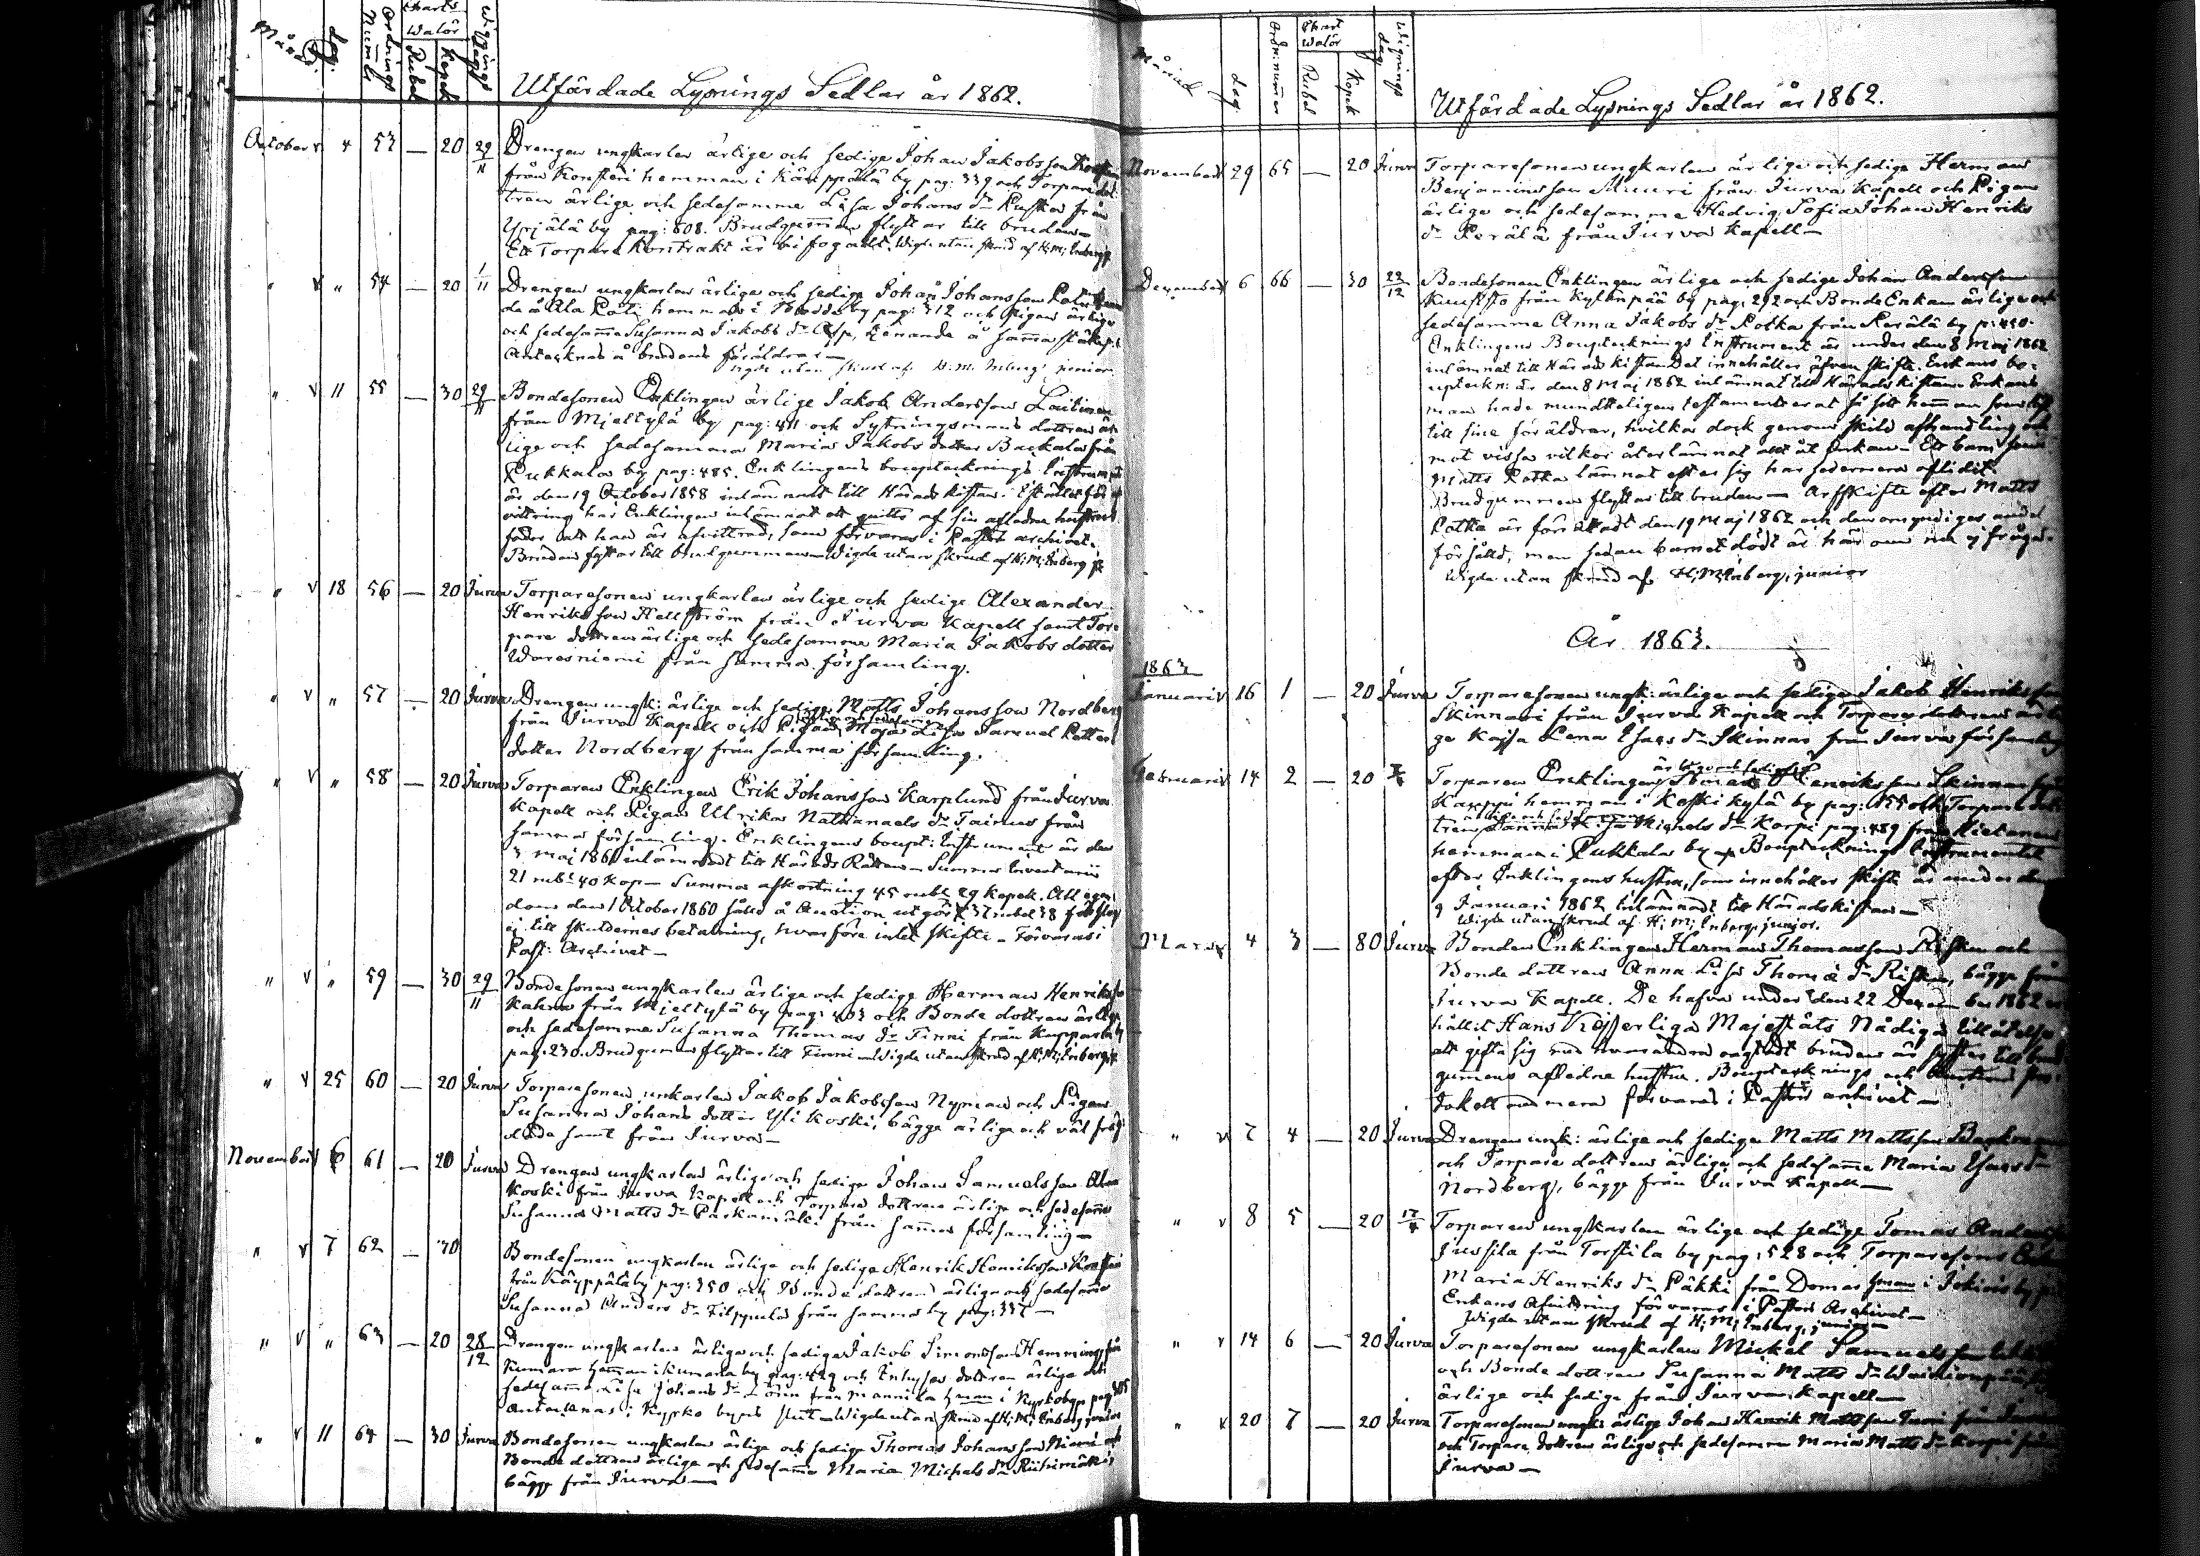 Månad. dag. Ordnings Num̄er Charts walör Rubel Kopek Wigningsdag Utfärdade Lysnings Sedlar år 1862.
October v 4 53 — 20 29/11 Drengen ungkarlen ärlige och sedige Johan Jakobsson
från Konsteri hemman i Käyppälä by pag: 339 och Torparedot-
tren ärlige och sedesamme Lisa Johans dr Ruska från
Ypjälä by pag: 808. Brudgummen flyttar till bruden—
Ett Torpare kontrakt är bifogadt. Wigde utan skrud af H: M: Inberg jr
" v " 54 — 20 1/11 Drengen ungkarlen ärlige och sedige Johan Johansson
de å Ala hemman i by pag: 312 och Pigan ärlige
och sedesam̄a Susanna Jakobs dr tjenande å sam̄a ställe
Antecknad å brudens föräldrar—
Wigde utan skrud af H. M. Inberg junior
" v 11 55 — 30 29/11 Bondesonen Enklingen ärlige Jakob Andersson Laitinen
från Mjeltylä by pag: 411 och Sytningsmans dottren är-
lige och sedesamma Maria Jakobs dotter från
Pukkala by pag: 485. Enklingens boupteckning's Instrument
är den 19 October 1858 inlämnadt till Härads kistan.
vittring har Enklingen inlämnat ett quitto af sin aflidna hustrus
fader att han är afvittrad, som förvaras i Pastors archivet.
Bruden flyttar till brudgummen— Wigde utan skrud af H: M: Inberg jr
" v 18 56 — 20 Jurva Torparesonen ungkarlen ärlige och sedige Alexander
Henriksson Hellström från Jurva Kapell samt Tor-
pare dottren ärlige och sedesamme Maria Jakobs dotter
Waresniemi från samma församling.
" v " 57 — 20 Jurva Drengen ungk: ärlige och sedige Matts Johansson Nordberg
från Jurva Kapell och Pigan Maja Lisa Samuel Petter
dotter Nordberg från samma församling.
" v " 58 — 20 Jurva Torparen Enklingen Erik Johansson Karplund från Jurva
Kapell och Pigan Ulrika Nathanaels dr Taimus från
samma församling. Enklingens boupt: Instrument är den
3 Maj 1861 inlämnadt till Härads Rätten— Summa Inventarii
21 rubl 40 kop— Summa afkortning 45 rubl 29 kopek. All egen-
dom den 1 October 1860 såld å Auction utgör 37 rubel 38 förslog
ej till skuldernes betalning, hvarföre intet skifte. Förvaras i
Past: Archivet—
" v " 59 — 30 29/11 Bondesonen ungkarlen ärlige och sedige Herman Henriksson
Kahra från Mjeltylä by pag: 403 och Bonde dottren ärlige
och sedesamme Susanna Thomas dr Finni från Kayppälä by
pag. 230. Brudgum̄en flyttar till Finni— Wigde utan skrud af H: M: Inberg jr
" v 25 60 — 20 Jurva Torparesonen unkarlen Jakob Jakobsson Nyman och Pigan
Susanna Johans dotter Yli Koski, bägge ärlige och väl frej-
dade samt från Jurva—
November v 6 61 — 20 Jurva Drengen ungkarlen ärlige och sedige Johan Samuelsson Ala
Koski från Jurva Kapell och Torpare dottren ärlige och sedesam̄e
Susanna Matts dr Parkamäki från sam̄a församling—
" v 7 62 — 30 Bondesonen ungkarlen ärlige och sedige Henrik Henriksson
från Käyppälä by pag: 350 och Bonde dottren ärlige och sedesam̄e
Susanna Anders dr Filppula från samma by pag: 337—
" v " 63 — 20 28/12 Drengen ungkarlen ärlige och sedige Jakob Simonsson Hemming från
Kumara hem̄an i Kumara by pag: 429 och Inhyses dottren ärlige och
sedesam̄e Lisa Johans dr från Mannila h̅man i Kyrkoby pag 305
Antecknas i Kyrko bypes slut— Wigde utan skrud af H: M: Inberg junior
" v 11 64 — 30 Jurva Bondesonen ungkarlen ärlige och sedige Thomas Johansson Niemi och
Bonde dottren ärlige och sedesam̄e Maria Michels dr Riihimäki,
bägge från Jurva—
Månad dag. Ordn: nummer Chart Walör Rubel Kopek Wignings dag Utfärdade Lysnings Sedlar år 1862.
November 29 65 — 20 Jurva Torparesonen ungkarlen ärlige och sedige Herman
Benjaminsson Muuri från Jurva Kapell och Pigan
ärlige och sedesamme Hedvig Sofia Johan Henriks
dr Perälä från Jurva Kapell—
December 6 66 — 30 22/12 Bondesonen Enklingen ärlige och sedige Johan Andersson
från Kylänpää by pag: 292 och Bonde Enkan ärlige och
sedesamme Anna Jakobs dr Potka från Perälä by p: 450.
Enklingens Boupteckning's Instrument är under den 8 Maj 1862
inlämnat till Härads kistan. Det innehåller äfven skifte. Enkans bo-
uptekn: är den 8 Maj 1862 inlämnat till Härads kistan. Enkans
man hade mundtteligen testamenterat så sitt hem̄an som
till sine föräldrar, hvilka dock genom skild afhandling och
mot vissa vilkor återlämnat allt åt Enkan— Ett barn som
Matts Potka lämnat efter sig har sedermera aflidit.
Brudgummen flyttar till bruden— Arfskifte efter Matts
Potka är förrättadt den 19 Maj 1862 och den omyndiges andel
försåld, men sedan barnet dödt är här om nu ej fråga.
Wigde utan skrud af H: M: Inberg, junior
År 1863.
1863
Januari v 16 1 — 20 Jurva Torparesonen ungk: ärlige och sedige Jakob Henriksson
Skinnari från Jurva Kapell och Torparedottren ärli-
ge Kajsa Lena Isaks dr Skinnar från Jurva församling
Februari v 14 2 — 20 Torparen Enklingen ärlige och sedige Henriksson Skinnar från
Karppi hemman i Koskikylä by pag: 155 och Torpare dot-
tren Lisa Michels dr Korpi pag: 489 från
hemman i Pukkala by— Boupteckning's Instrumentet
efter Enklingens hustru, som innehåller skifte är under den
9 Januari 1862 inlämnadt till Häradskistan—
Wigde utan skrud af H: M: Inberg, junior.
Mars v 4 3 — 80 Jurva Bonden Enklingen Herman Thomasson Risku och
Bonde dottren Anna Lisa Thomæ dr Risku, bägge från
Jurva Kapell. De hafva under den 22 December 1862 er-
hållit Hans Kejserliga Majestäts Nådiga tillåtelse
att gifta sig med hvarandra oagtadt bruden är syster till brud-
gumens aflidna hustru. Bouptecknings och
tokoll med mera förvaras i Pastors archivet—
" v 7 4 — 20 Jurva Drengen ungk: ärlige och sedige Matts Mattsson Backman
och Torpare dottren ärlige och sedesam̄e Maria Isaks dr
Nordberg, bägge från Jurva Kapell—
" v 8 5 — 20 17/4 Torparen ungkarlen ärlige och sedige Tomas Andersson
Jussila från Torstila by pag: 528 och Torparesons Enkan
Maria Henriks dr Päkki från Domar h̅man i Jokiois by
Enkans Afvittring förvaras i Pastors Archivet—
Wigde utan skrud af H: M: Inberg, junior—
" v 14 6 — 20 Jurva Torparesonen ungkarlen Mickel Samuelsson
och Bonde dottren Susanna Matts dr
ärlige och sedige från Jurva Kapell—
" v 20 7 — 20 Jurva Torparesonen ungk: ärlige Johan Henrik Mattsson från Jurva
och Torpare dottren ärlige och sedesamma Maria Matts dr Korpi från
Jurva—